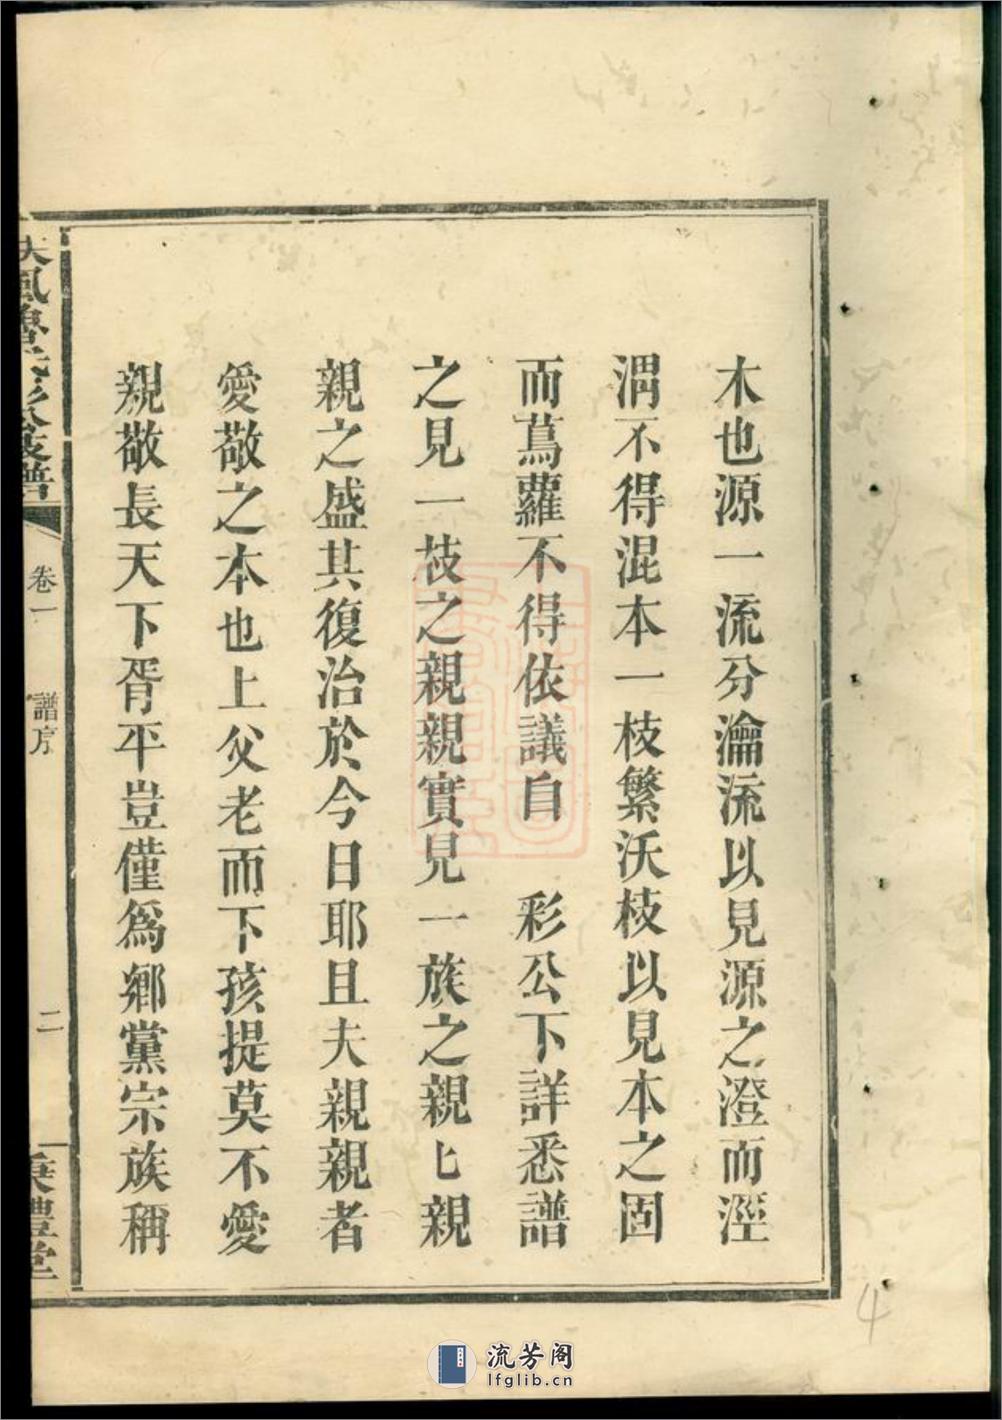 木也源一流分瀹流以見源之澄而涇
渭不得混本一枝繁沃枝以見本之固
而蔦蘿不得依議自　彩公下詳悉譜
之見一枝之親親實見一族之親匕親
親之盛其復治於今日耶且夫親親者
愛敬之本也上父老而下孩提莫不愛
親敬長天下胥平豈僅爲鄉黨宗族稱
扶風魯氏彩公支譜
卷一
譜序
二
秉禮堂
4
流芳阁
lfglib.cn